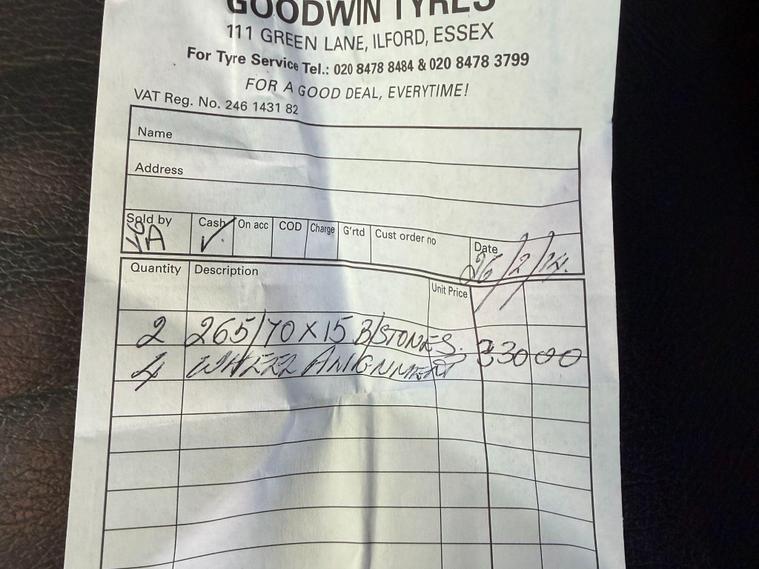 GOODWIN TYRES
111 GREEN LANE, ILFORD, ESSEX
For Tyre Service Tel.: 020 8478 8484 & 020 8478 3799
FOR A GOOD DEAL, EVERYTIME!
VAT Reg. No. 246 1431 82
Name
Address
Sold by Cash On acc COD Charge G'rtd Cust order no Date
26/2/14.
Quantity Description Unit Price
2 265/70 X 15 B/STONES. 330 00
4 WHEEL ALIGNMENT